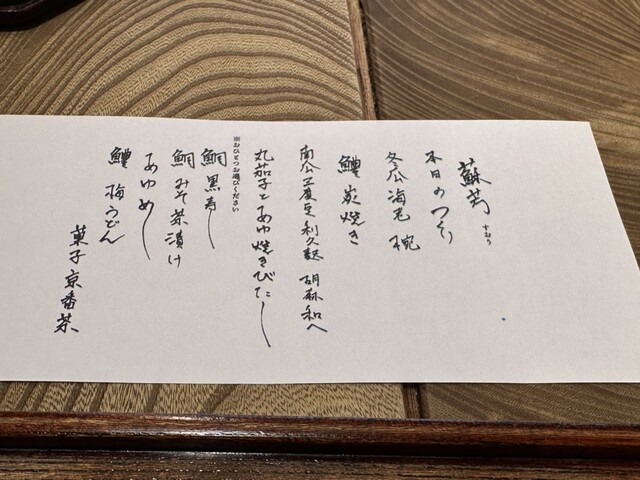 蘇芳
すおう
本日のつくり
冬瓜海老 椀
鱧 炭焼き
南瓜 豆 利久麩 胡麻和へ
丸茄子とあゆ焼きびたし
※おひとつお選びください
鯛 黒寿し
鯛みそ茶漬け
あゆめし
鱧 梅うどん
菓子 京番茶